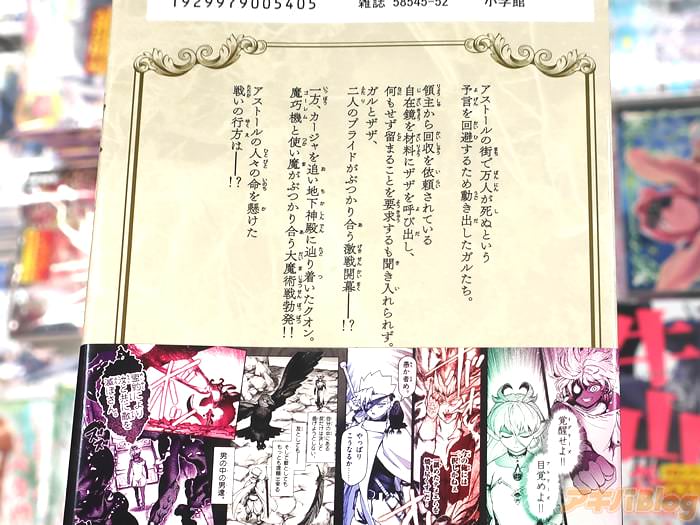 1929979005405
雑誌 58545-52
小学館
アストールの街で万人が死ぬという
予言を回避するため動き出したガルたち。
領主から回収を依頼されている
自在鏡を材料にザザを呼び出し、
何もせず留まることを要求するも聞き入れられず。
ガルとザザ、
二人のプライドがぶつかり合う激戦開幕――!?
一方、カージャを追い地下神殿に辿り着いたクオン。
魔巧機と使い魔がぶつかり合う大魔術戦勃発!!
アストールの人々の命を懸けた
戦いの行方は――!?
覚醒せよ!!
目覚めよ!!
愚か者め
やっぱり
こうなるか…
男の中の男達。
アキバBlog